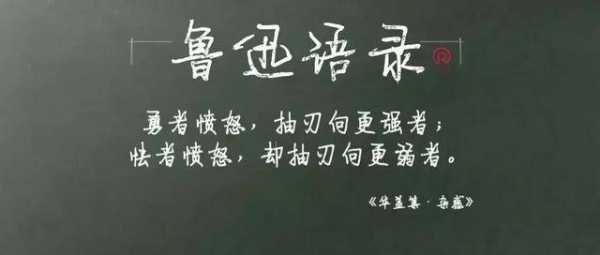 鲁迅语录
勇者愤怒，抽刃向更强者；
怯者愤怒，却抽刃向更弱者。
《华盖集·杂感》